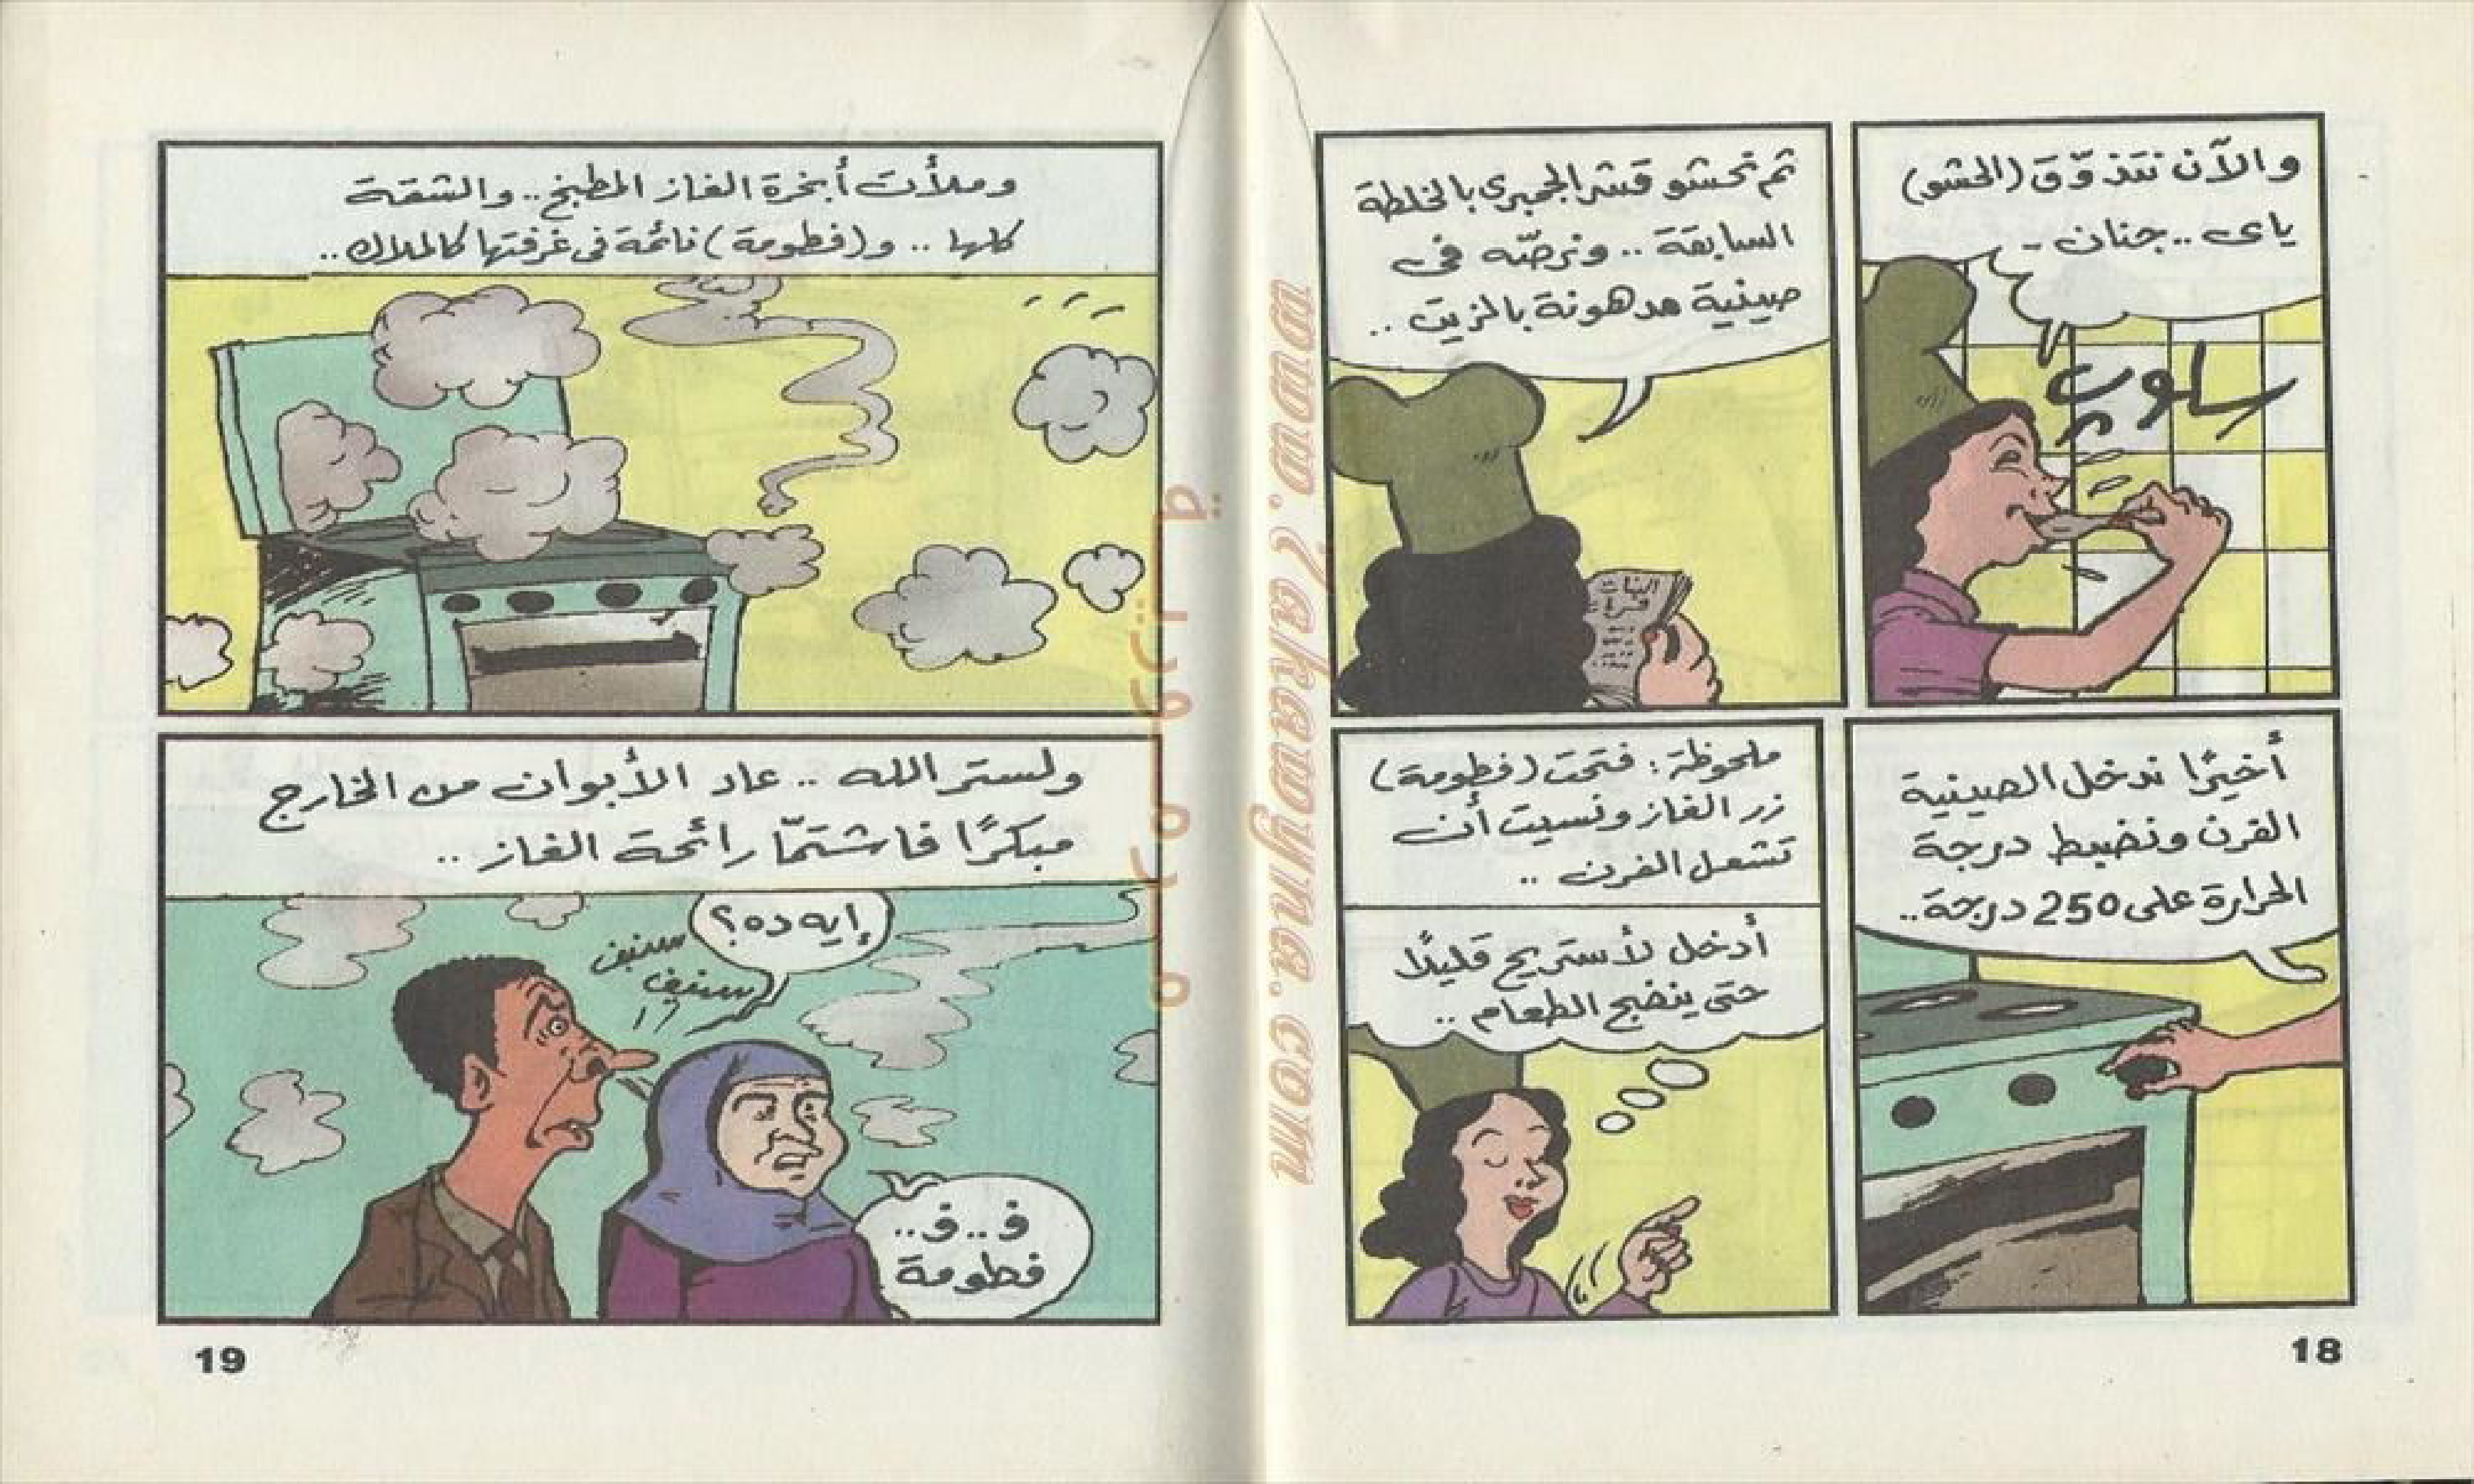 والآن نتذوّق (الحشو)
ياى .. جنان -
سلوب
ثم نحشو قشر الجمبرى بالخلطة
السابقة .. ونرصّه فى
صينية مدهونة بالزيت ..
البنات
أخيرًا ندخل الصينية
الفرن ونضبط درجة
الحرارة على 250 درجة..
ملحوظة : فتحت (فطومة)
زر الغاز ونسيت أن
تشعل الفرن ..
أدخل لأستريح قليلًا
حتى ينضج الطعام ..
18
وملأت أبخرة الغاز المطبخ .. والشقة
كلها .. و(فطومة) نائمة فى غرفتها كالملاك ..
ولستر الله .. عاد الأبوان من الخارج
مبكرًا فاشتمّا رائحة الغاز ..
إيه ده؟
سنيف
سنيف
ف .. ف ..
فطومة
19
www.7akawyna.com